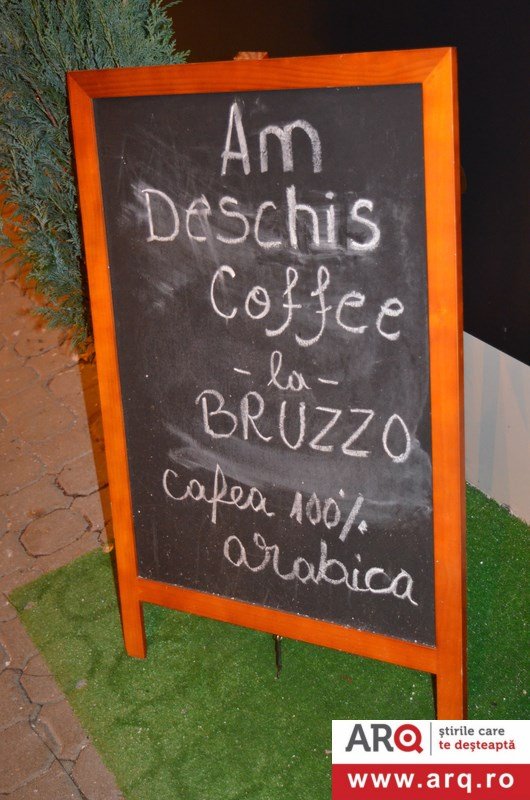 Am
Deschis
Coffee
- la -
BRUZZO
cafea 100%
arabica
ARQ
știrile care
te deșteaptă
www.arq.ro